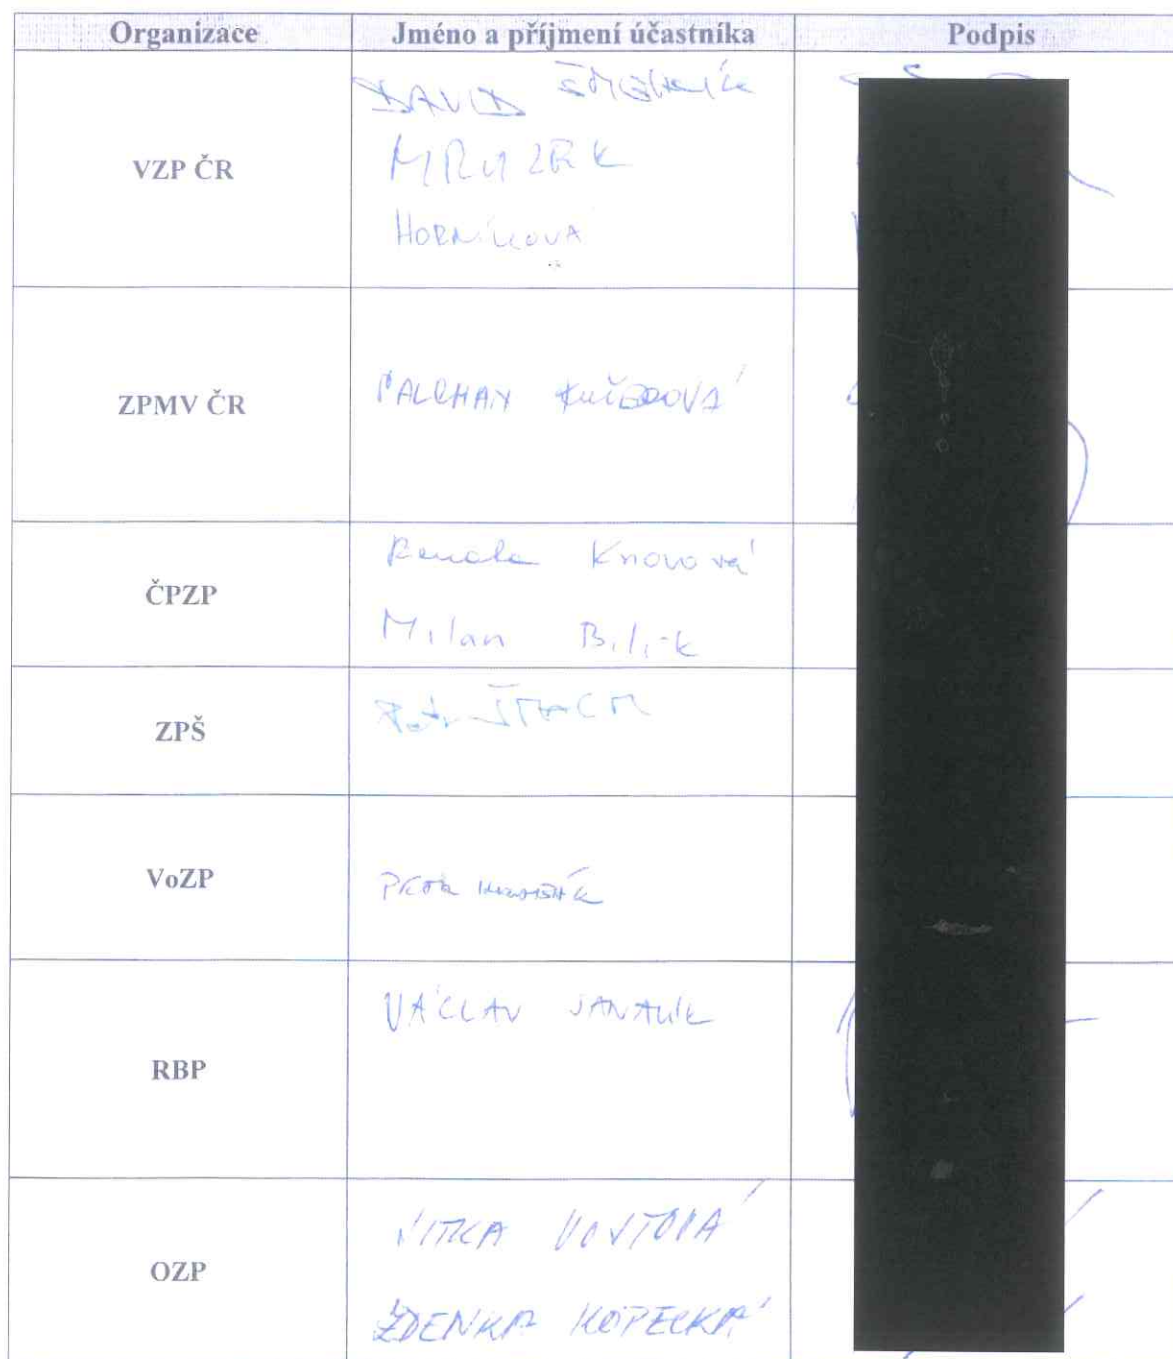 Organizace Jméno a příjmení účastníka Podpis
VZP ČR
DAVID
HORNÍKOVÁ
ZPMV ČR
KUČEROVÁ
ČPZP
Renata
Milan Bilik
ZPŠ
Petr
VoZP
PETR
RBP
VÁCLAV JANALÍK
OZP
JITKA VOJTOVÁ
ZDENKA KOPECKÁ